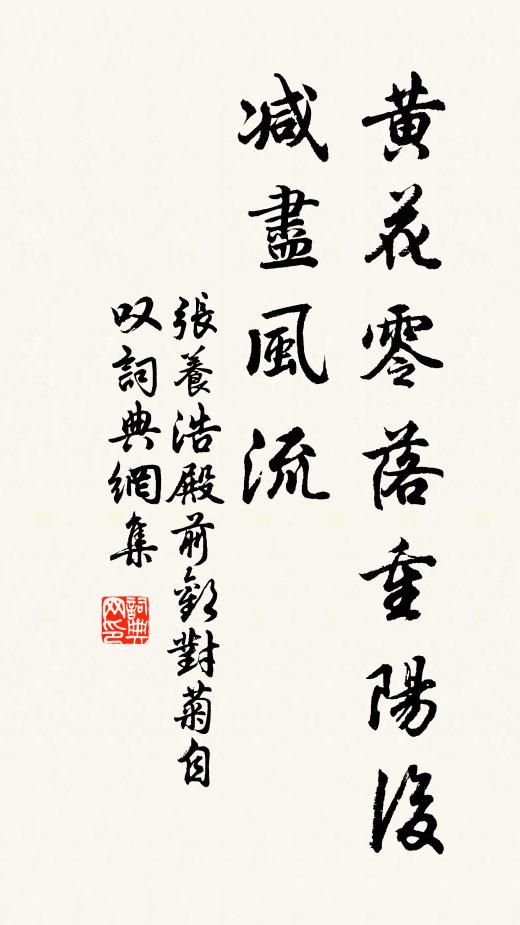 黄花零落重陽後
减盡風流
張養浩殿前歡對菊自
叹詞典網集
詞典
网印